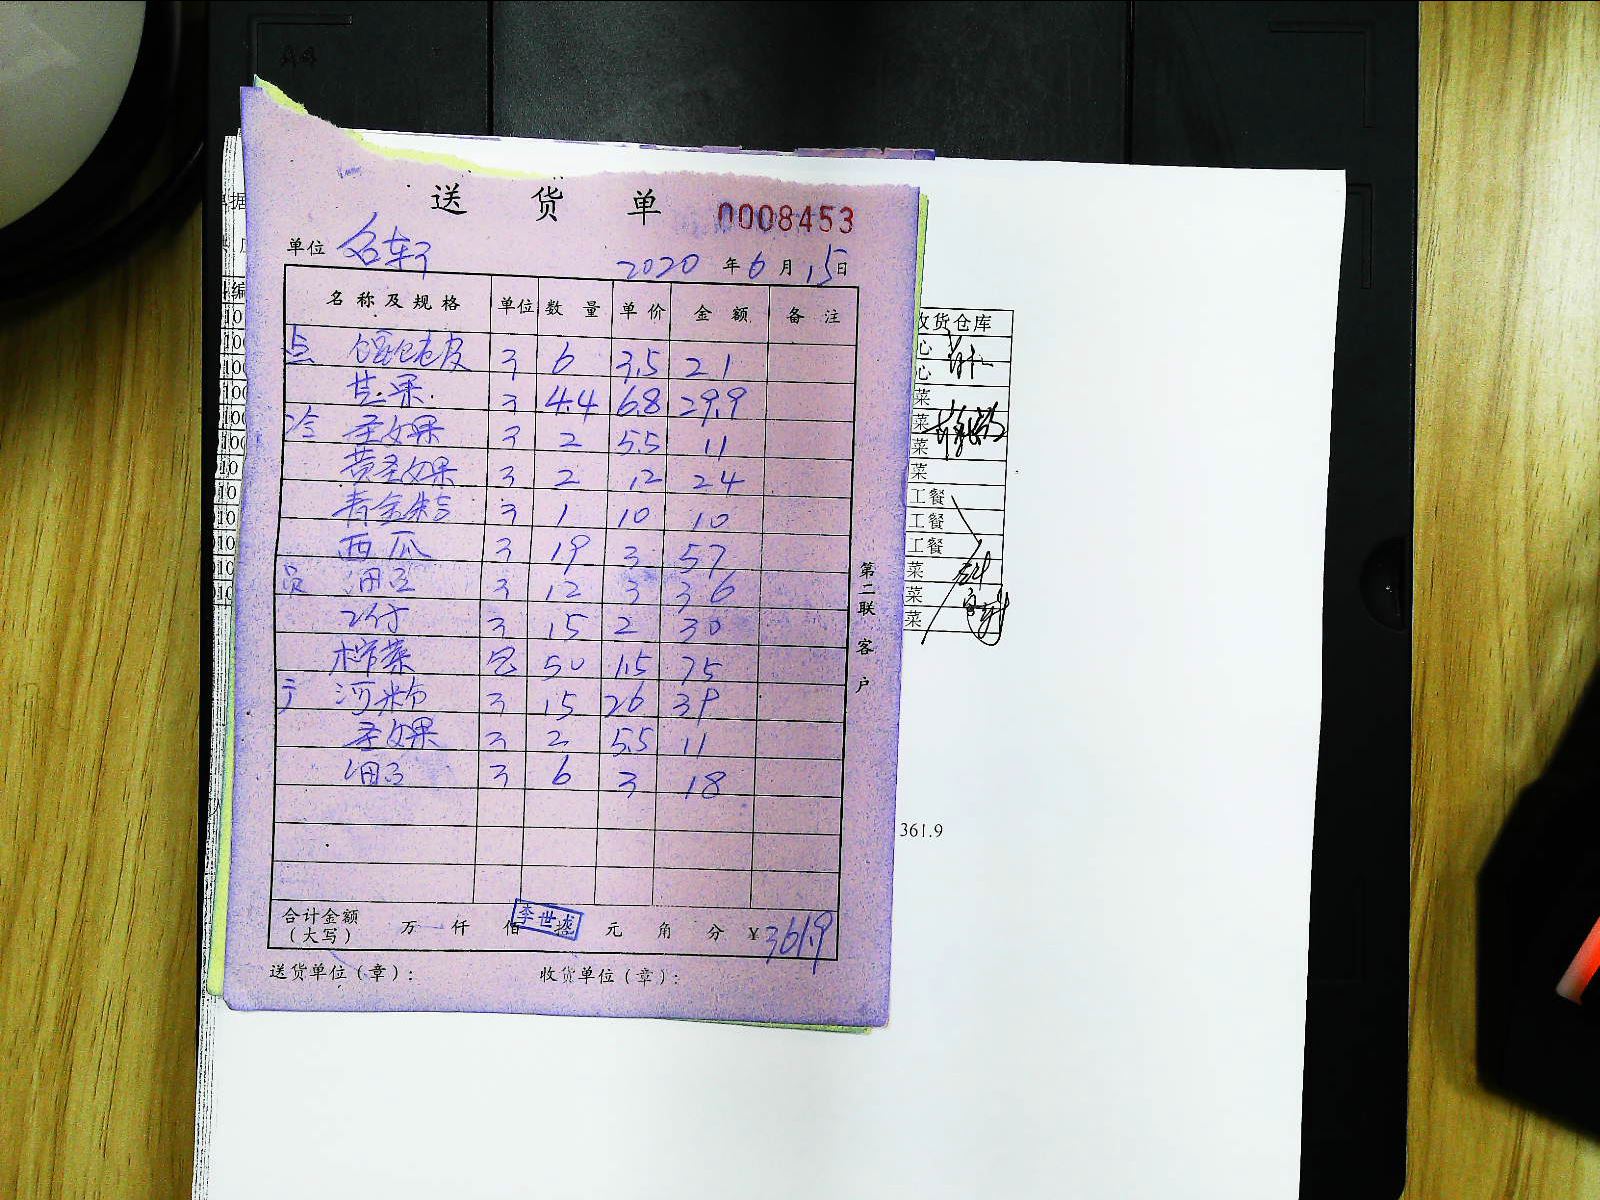 A4
送货单 0008453
单位 名轩 2020年6月15日
名称及规格 单位 数量 单价 金额 备注
点 馄饨皮 3 6 3.5 21
芒果 3 4.4 6.8 29.9
冷 圣女果 3 2 5.5 11
黄圣女果 3 2 12 24
青金桔 3 1 10 10
西瓜 3 19 3 57
员 3 12 3 36
3 15 2 30
榨菜 包 50 1.5 75
河粉 3 15 2.6 39
圣女果 3 2 5.5 11
3 6 3 18
合计金额(大写) 万 仟 佰 拾 元 角 分 ¥361.9
李世
送货单位(章): 收货单位(章):
第二联 客户
收货仓库
心
心
菜
菜
菜
菜
工餐
工餐
工餐
菜
菜
菜
361.9
据
编